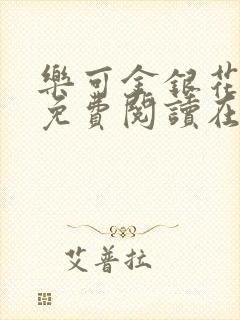 樂可金銀花
免費閱讀在
艾普拉